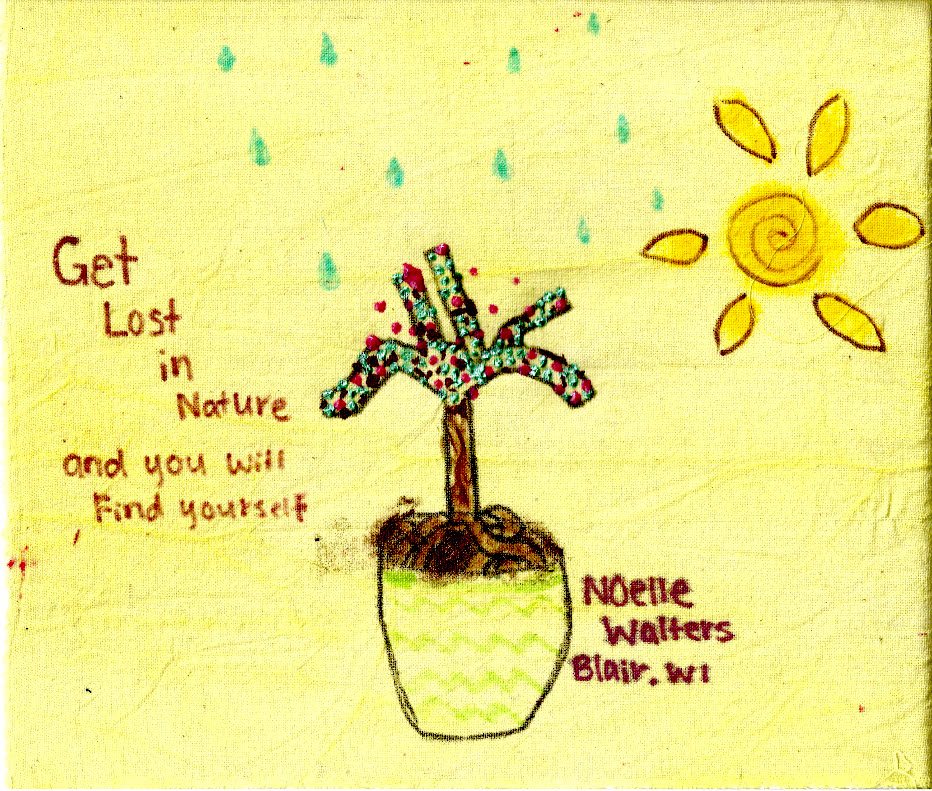 Get
Lost
in
Nature
and you will
Find yourself
NOelle
Walters
Blair. WI